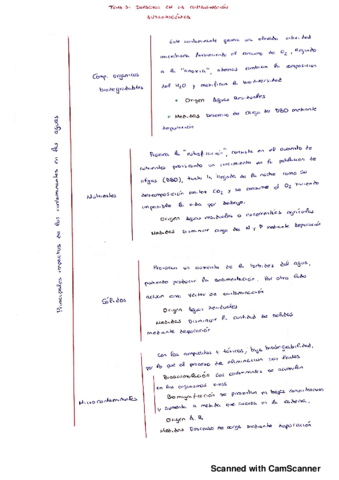 TEMA 3: DERECHO EN LA CONTAMINACIÓN
Principales impactos de los contaminantes en las aguas
Comp. orgánicos
biodegradables
Este contaminante genera una elevada actividad
microbiana favoreciendo el consumo de O2, llegando
a la "anoxia", además cambia la composición
del H2O y modifica la biodiversidad
• Origen Aguas Residuales
• Medidas Descenso de carga de DBO mediante
depuración
Nutrientes
"eutrofización", consiste en el aumento de
nutrientes provocando un crecimiento en la población de
algas (DBO), hasta la llegada de la noche como su
descomposición emiten CO2 y se consume el O2
imposible la vida por debajo.
Origen Aguas residuales o escorrentías agrícolas
Medidas Disminuir carga de N y P mediante depuración
Sólidos
Provocan un aumento de la turbidez del agua,
pudiendo producir la sedimentación. Por otro lado
actúan como vector de contaminación
Origen Aguas residuales
Medidas Disminuir la cantidad de sólidos
mediante depuración
Microcontaminantes
Con los compuestos + tóxicos, baja biodegradabilidad,
por lo que el proceso de eliminación son lentos
Bioacumulación Los contaminantes se acumulan
en los organismos vivos
Biomagnificación Se presentan en bajas concentraciones
y aumenta a medida que avanza en la cadena.
Origen A. R.
Medidas Descenso de carga mediante depuración
Scanned with CamScanner